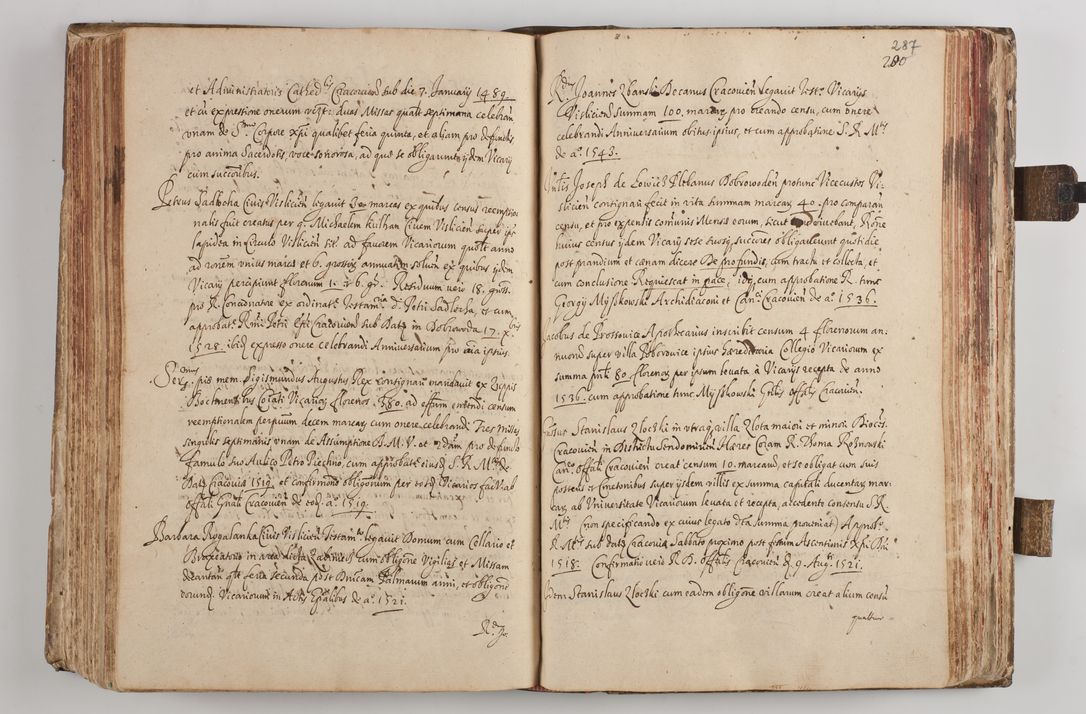 et Administratoris Cathed. Cracovien sub die 7. Januarij 1489.
et cu expressione onerum vzt: duas Missas qualt septimana celebran
unam de Smo Corpore xpi qualibet feria quinta, et aliam pro defunctis
pro anima Sacerdotis, voce sonorosa, ad quae se obligarunt ijdem Vicarij
cum succoribus.
Petrus Sadlocha Civis Vislicien legavit marcas ex quibus census reemptio
nalis fuit creatus per q. Michaelem Kulhan Civem Vislicien super
lapidea in Circulo Vislicien sit. ad favorem Vicariorum quolt anno
ad ronem unius marcae et 6. grossis annuatim solven ex quibus ijdem
Vicarij percipiunt florenum 1. et 6. gr. Residuum vero 18. gross.
pro R. Concionatore ex ordinate Testam. d. Petri Sadlocha, et cum
approbat. Rmi Petri Epi Cracovien sub Datt in Bobrowda 17. Xbris
1528. ibidem expresso onere celebrandi Anniversarium pro aia ipsius.
Ser. piae mem. Sigismundus Augustus Rex consignari mandavit ex Zuppis
Bochnensibus Coetui Vicarior florenos 380. ad effum emendi censum
reemptionalem perpuum decem marcar cum onere celebrandi Tres Missas
singulis septimanis unam de Assumptione B. M. V. et pro defuncto
famulo suo Aulico Petro Piechno, cum approbate eiusd. S. R. Mtis de
Datt Cracoviae 1519. et confirmone obligonum per totd Vicarios fact. ab
offali Gnali Cracovien de eod. a. 1519.
Barbara Rygalanka Civis Vislicien Testam. legavit Domum cum Cellario et
Braxeatorio in area dicta cum obligone Vigilias et Missam
decantan qlt feria secunda post Dnicam Palmarum anni, et obligone
eorund. Vicariorum in Actis Epalibus de a. 1521.
Rd. Jo:
287
280
Rdus Joannes Decanus Cracovien legavit Test. Vicarijs
Vislicien summam 100. marcar pro creando censu, cum onere
celebrandi Anniversarium obitus ipsius, et cum approbatione S. R. Mtis
de a. 1543.
Joseph de Lowicz Plebanus Bobrowoden protunc Vicecustos Vi-
slicien contignari fecit in vita summam marcar 40. pro comparan
censu, et pro expensis comunis Mensa eorum, sicut, Rone
huius census ijdem Vicarij sese suosq succores obligaverunt quotidie
post prandium et caenam dicere De profundis, cum tractu et collecta, et
cum conclusione Requiescat in pace, idq cum approbatione R. tunc
Georgij Myszkowski Archidiaconi et Canci Cracovien de a. 1536.
Jacobus de Prossovice Apothecarius inscribit censum 4 florenorum an-
nuorum super villa Boborovice ipsius haereditaria Collegio Vicariorum ex
summa 80. florenor per ipsum levata à Vicarijs recepta de anno
1536. cum approbatione tunc Myszkowski Gnlis offalis Cracovien.
Stanislaus Zlocski in utraq villa Zlota maiori et minori Dioces.
Cracovien in Districtu Sendomirien Haeres Coram R. Thoma Roznowski
Canco. offali Cracovien creat censum 10. marcarum, et se obligat cum suis
posteris et Cmetonibus super ijsdem villis ex summa capitali ducentar mar-
car ab Universitate Vicariorum levata et recepta, accedente consensu S R.
Mtis (non specificando ex cuius legato dta summa proveniat) Approbt.
R. Mtis sub datt Cracoviae Sabbato proximo post festum Ascentionis Xpi Dni
1518. Confirmatio vero R D. Offalis Cracovien d. 9. Augi 1521.
Idem Stanislaus Zlocski cum eadem obligone villarum creat alium censu
quattuor